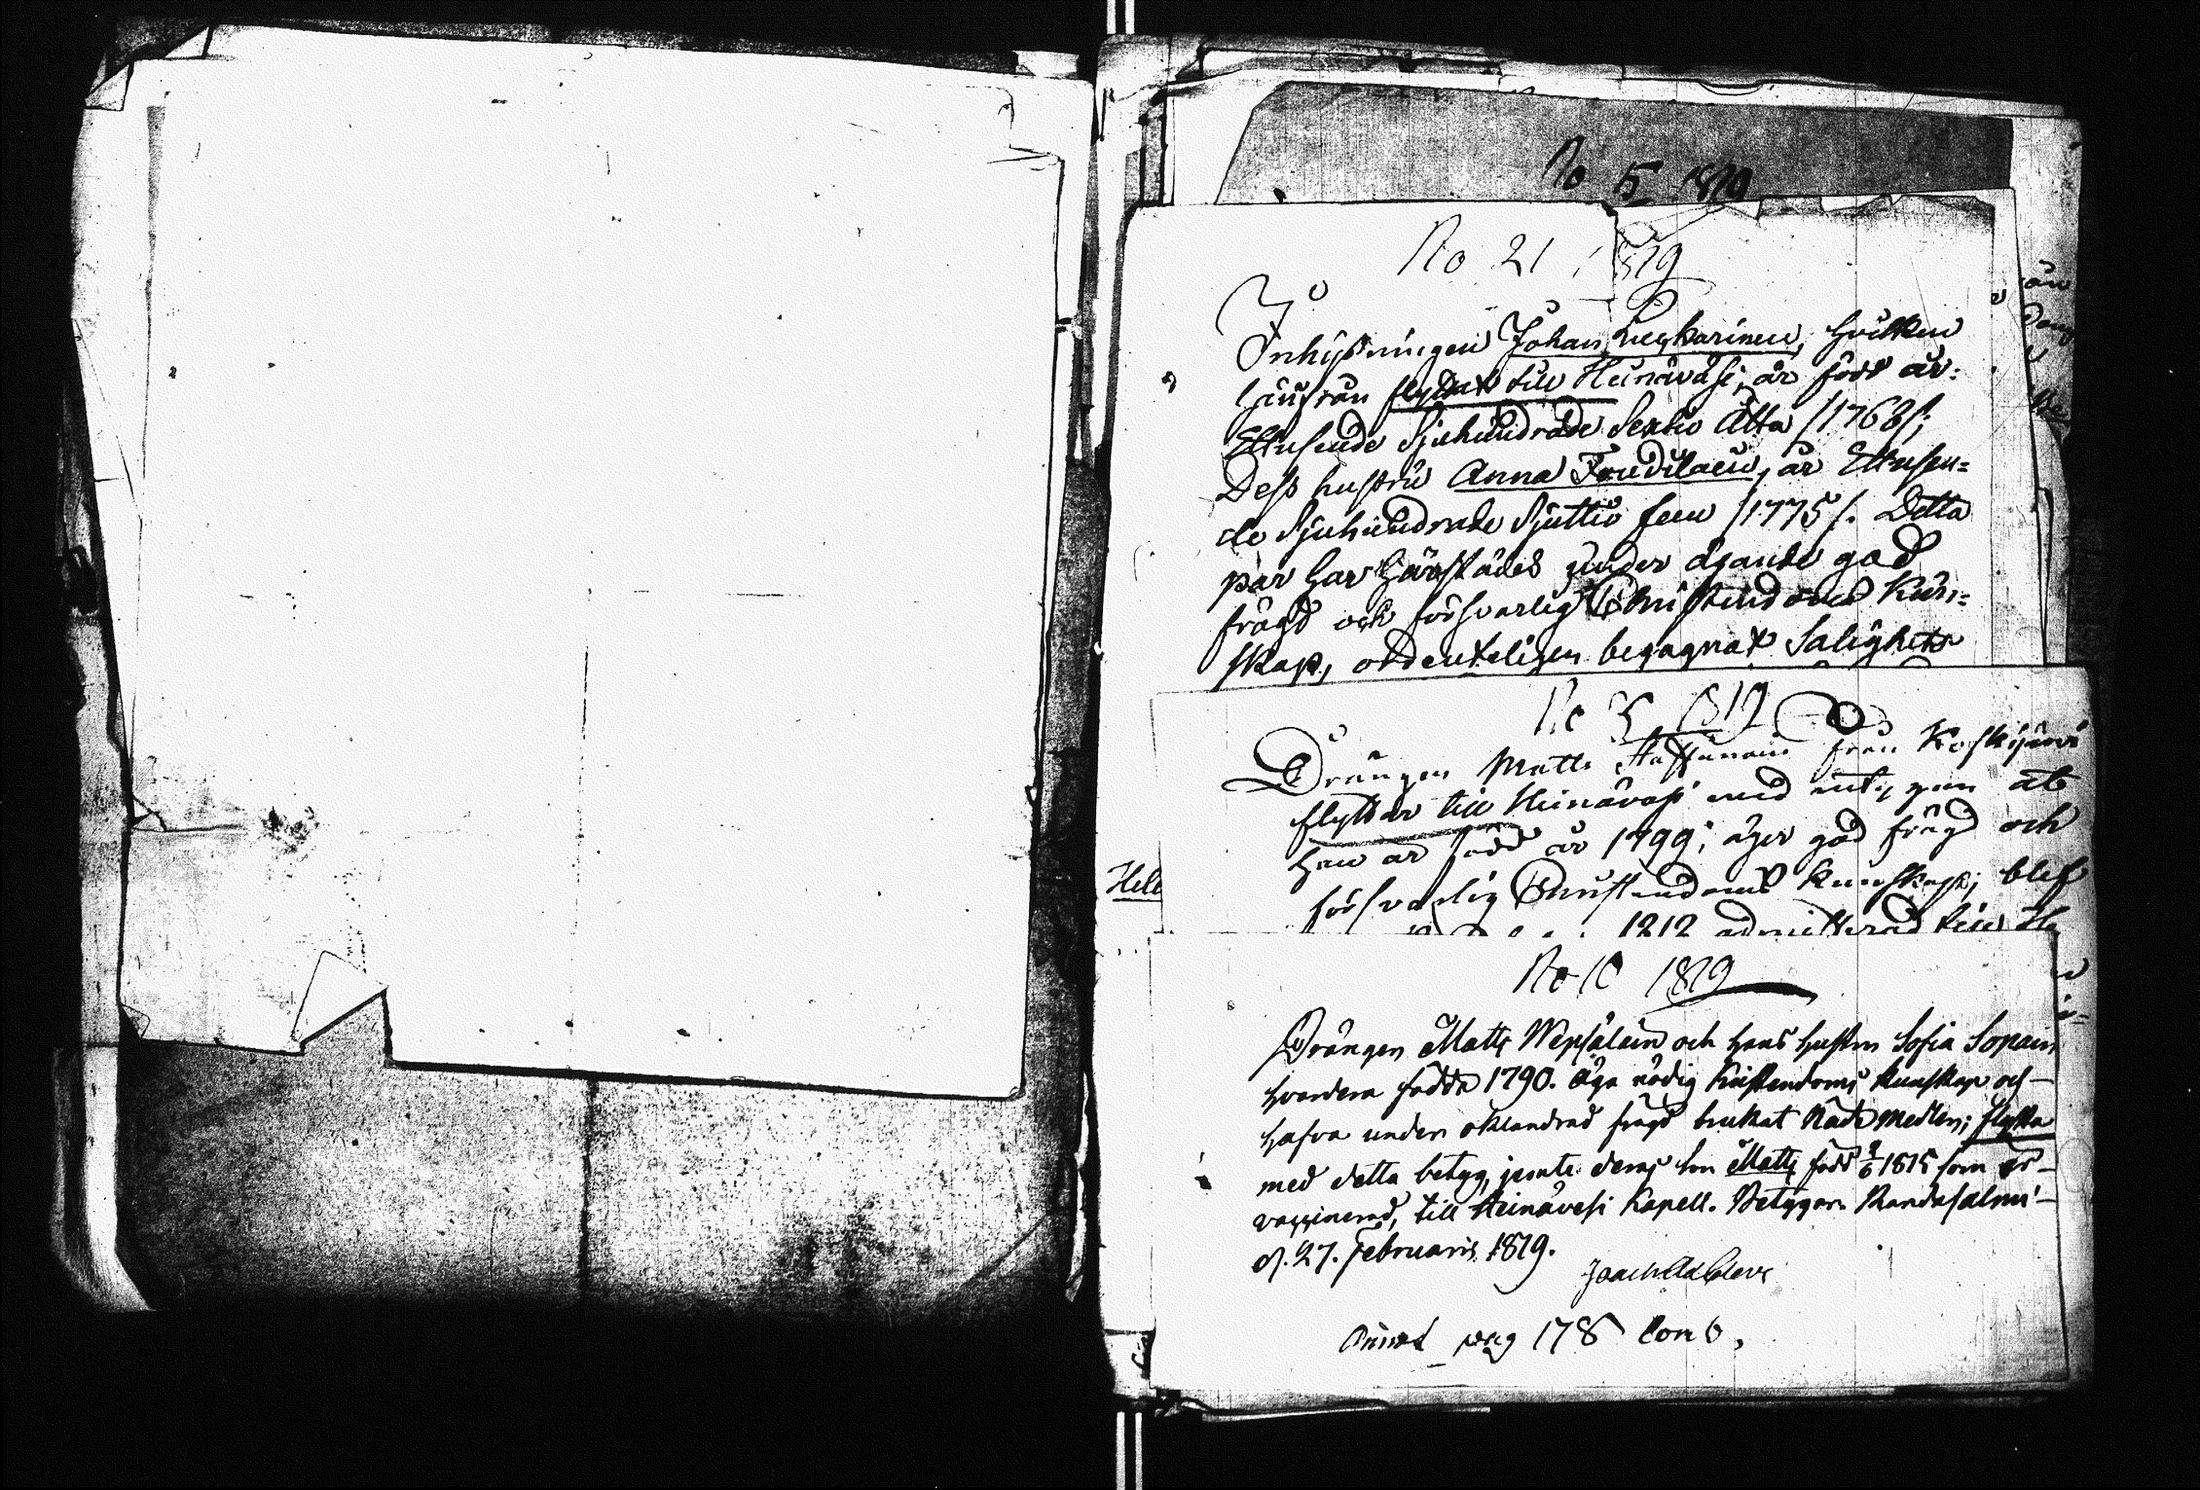 No 5 1819
No 21 1819
Inhysningen Johan hvilken
härifrån flyttat till Heinävesi, är född år:
Ettusende Sjuhundrade Sextio Åtta /1768/;
Dess hustru Anna är Ettusen=
de Sjuhundrade Sjuttio fem /1775/. Detta
par har härstädes under ägande god
frägd och försvarlig Christendoms Kun=
skap, ordenteligen begagnat Salighets
No 5 1819
Drängen Matts från Koskijärvi
flyttar till Heinävesi med
han är född år 1799; äger god frägd och
försvarlig Christendoms kunskap; blef
1812 admitterad till H
Hele
No 10 1819
Drängen Matts Wepsäläin och hans hustru Sofia Sopain
hvardera födda 1790. äga nödig Kristendoms kunskap och
hafva under oklandrad frägd brukat Nådemedlen; flytta
med detta betyg, jemte deras son Matts född 9/6 1815 som är
vaccinerad, till Heinävesi Kapell. Betygar. Randasalmi
d. 27. Februarii 1819.
pag 178